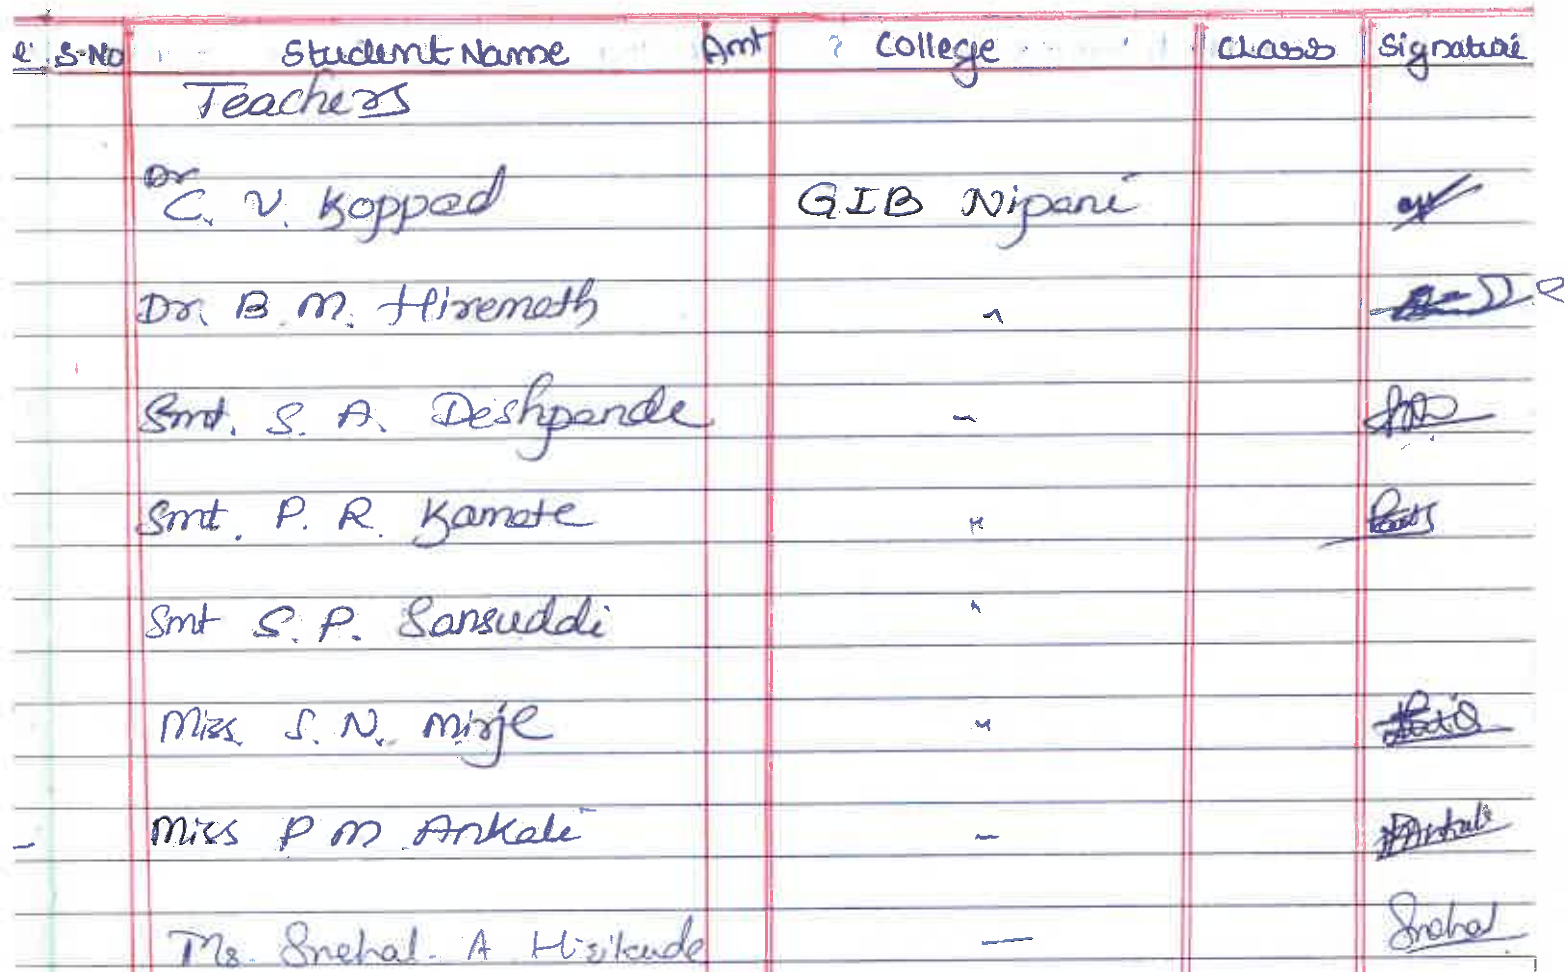 S.No Student Name Amt College Class Signature
Teachers
Dr
C. V. Koppad GIB Nipani
Dr. B. M. Hiremath
Smt. S. A. Deshpande -
Smt. P. R. Kamate "
Smt S. P. Sansuddi "
Miss. S. N. Mirje "
Miss P M Ankali - Ankali
Ms. Snehal. A — Snehal